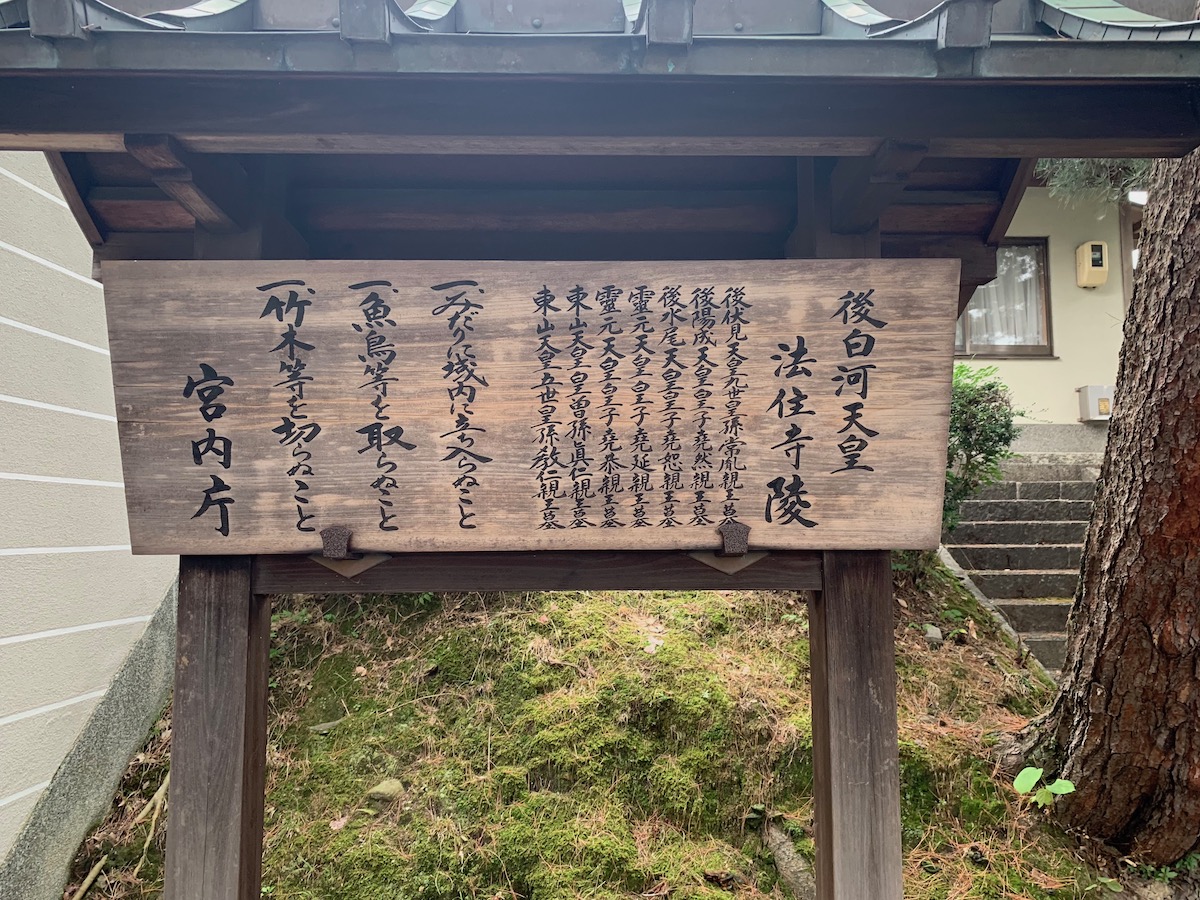 後白河天皇
法住寺陵
後伏見天皇九世皇孫常胤親王墓
後陽成天皇皇子堯然親王墓
後水尾天皇皇子堯恕親王墓
靈元天皇皇子堯延親王墓
靈元天皇皇子堯恭親王墓
東山天皇皇曽孫眞仁親王墓
東山天皇五世皇孫敎仁親王墓
一、みだりに域内に立ち入らぬこと
一、魚鳥等を取らぬこと
一、竹木等を切らぬこと
宮内庁